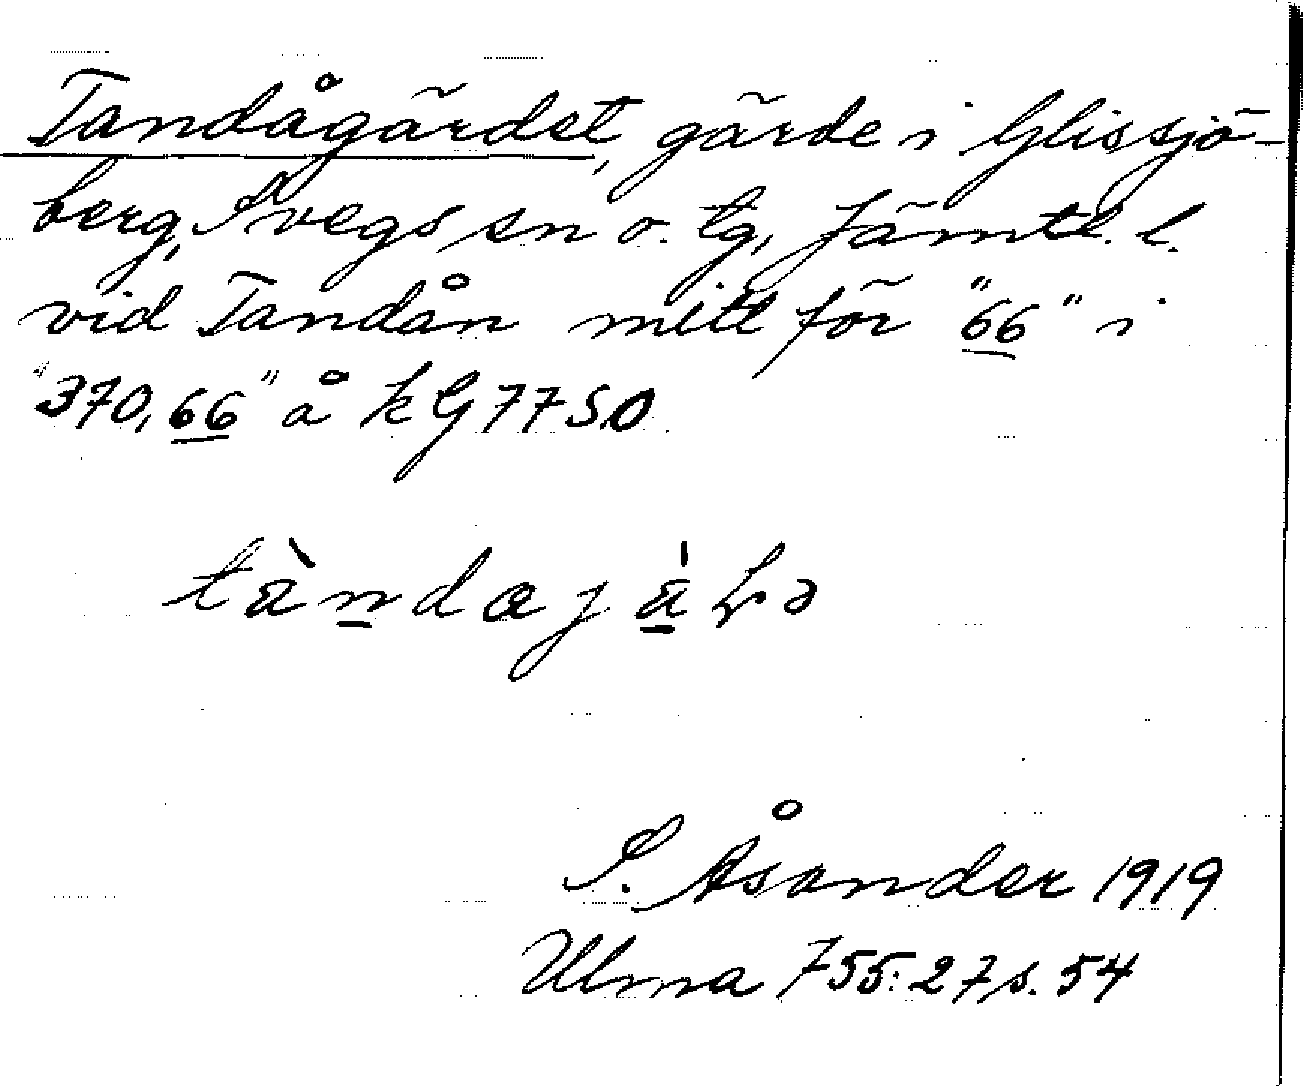 Tandågärdet, gärde i Glissjö-
berg, Svegs sn o. tg, Jämtl. l.
vid Tandån mitt för "66" i
"370,66" å kG 77 SO
S. Åsander 1919
Ulma 755:27 s. 54